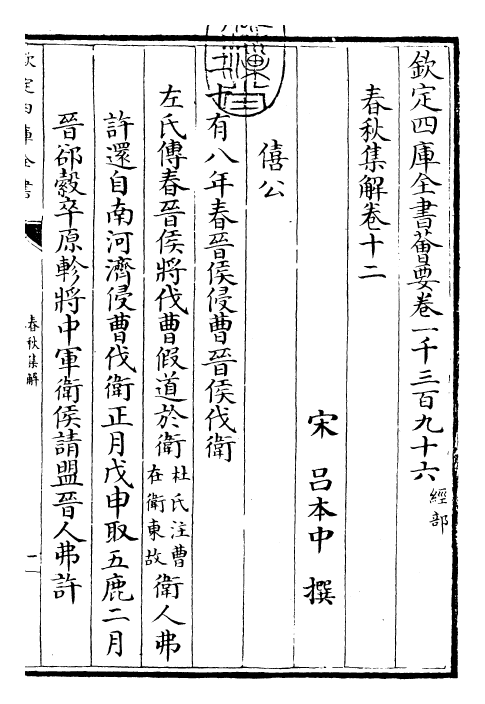 欽定四庫全書薈要卷一千三百九十六 經部
春秋集解卷十二
宋 吕本中 撰
僖公
二十有八年春晉侯侵曹晉侯伐衛
左氏傳春晉侯將伐曹假道於衛 杜氏注曹在衛東故 衛人弗
許還自南河濟侵曹伐衛正月戊申取五鹿二月
晉郤縠卒原軫將中軍衛侯請盟晉人弗許
欽定四庫全書
春秋集解
一